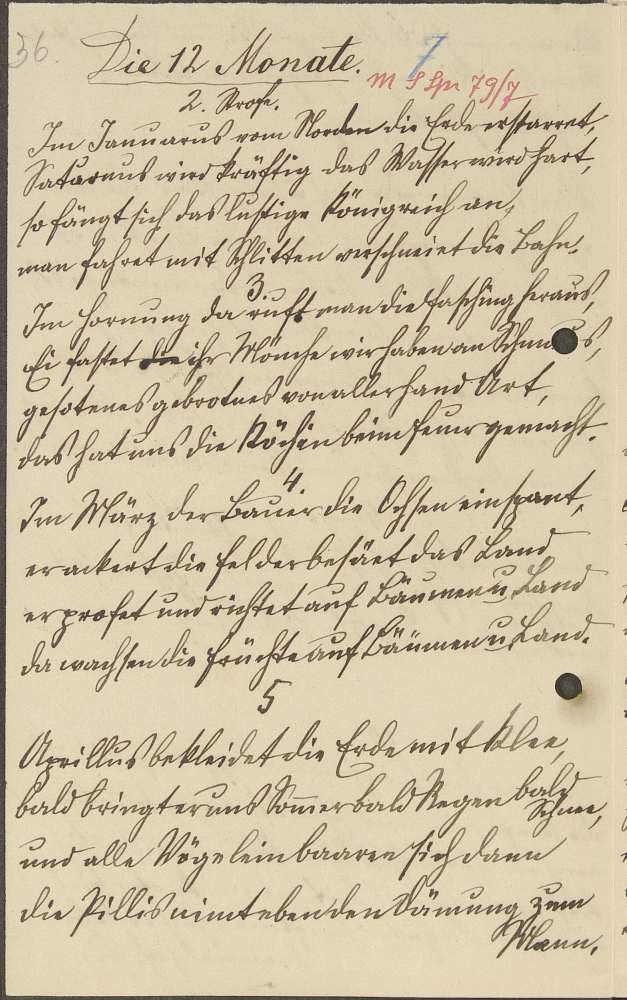 36.
Die 12 Monate.
7
2. Strofe.
79/7
Im Januarus vom Norden die Erde erstarret,
Saturnus wird kräftig das Wasser wird hart,
so fängt sich das lustige Königreich an,
man fahret mit Schlitten verschneiet die Bahn.
3.
Im Hornung da ruft man die Fasching heraus,
Ei fastet ihr Mönche wir haben an Schmaus,
gesotenes gebrotnes von allerhand Art,
das hat uns die Köchin beim Feuer gemacht.
4.
Im März der Bauer die Ochsen einspant,
er ackert die Felder besäet das Land
er profet und richtet auf Bäumen u Land
da wachsen die Früchte auf Bäumen u Land.
5
Aprillus bekleidet die Erde mit Klee,
bald bringt er uns Sommer bald Regen bald
Schnee,
und alle Vögelein baaren sich dann
die Pillis nimt eben den Dämung zum
Mann.